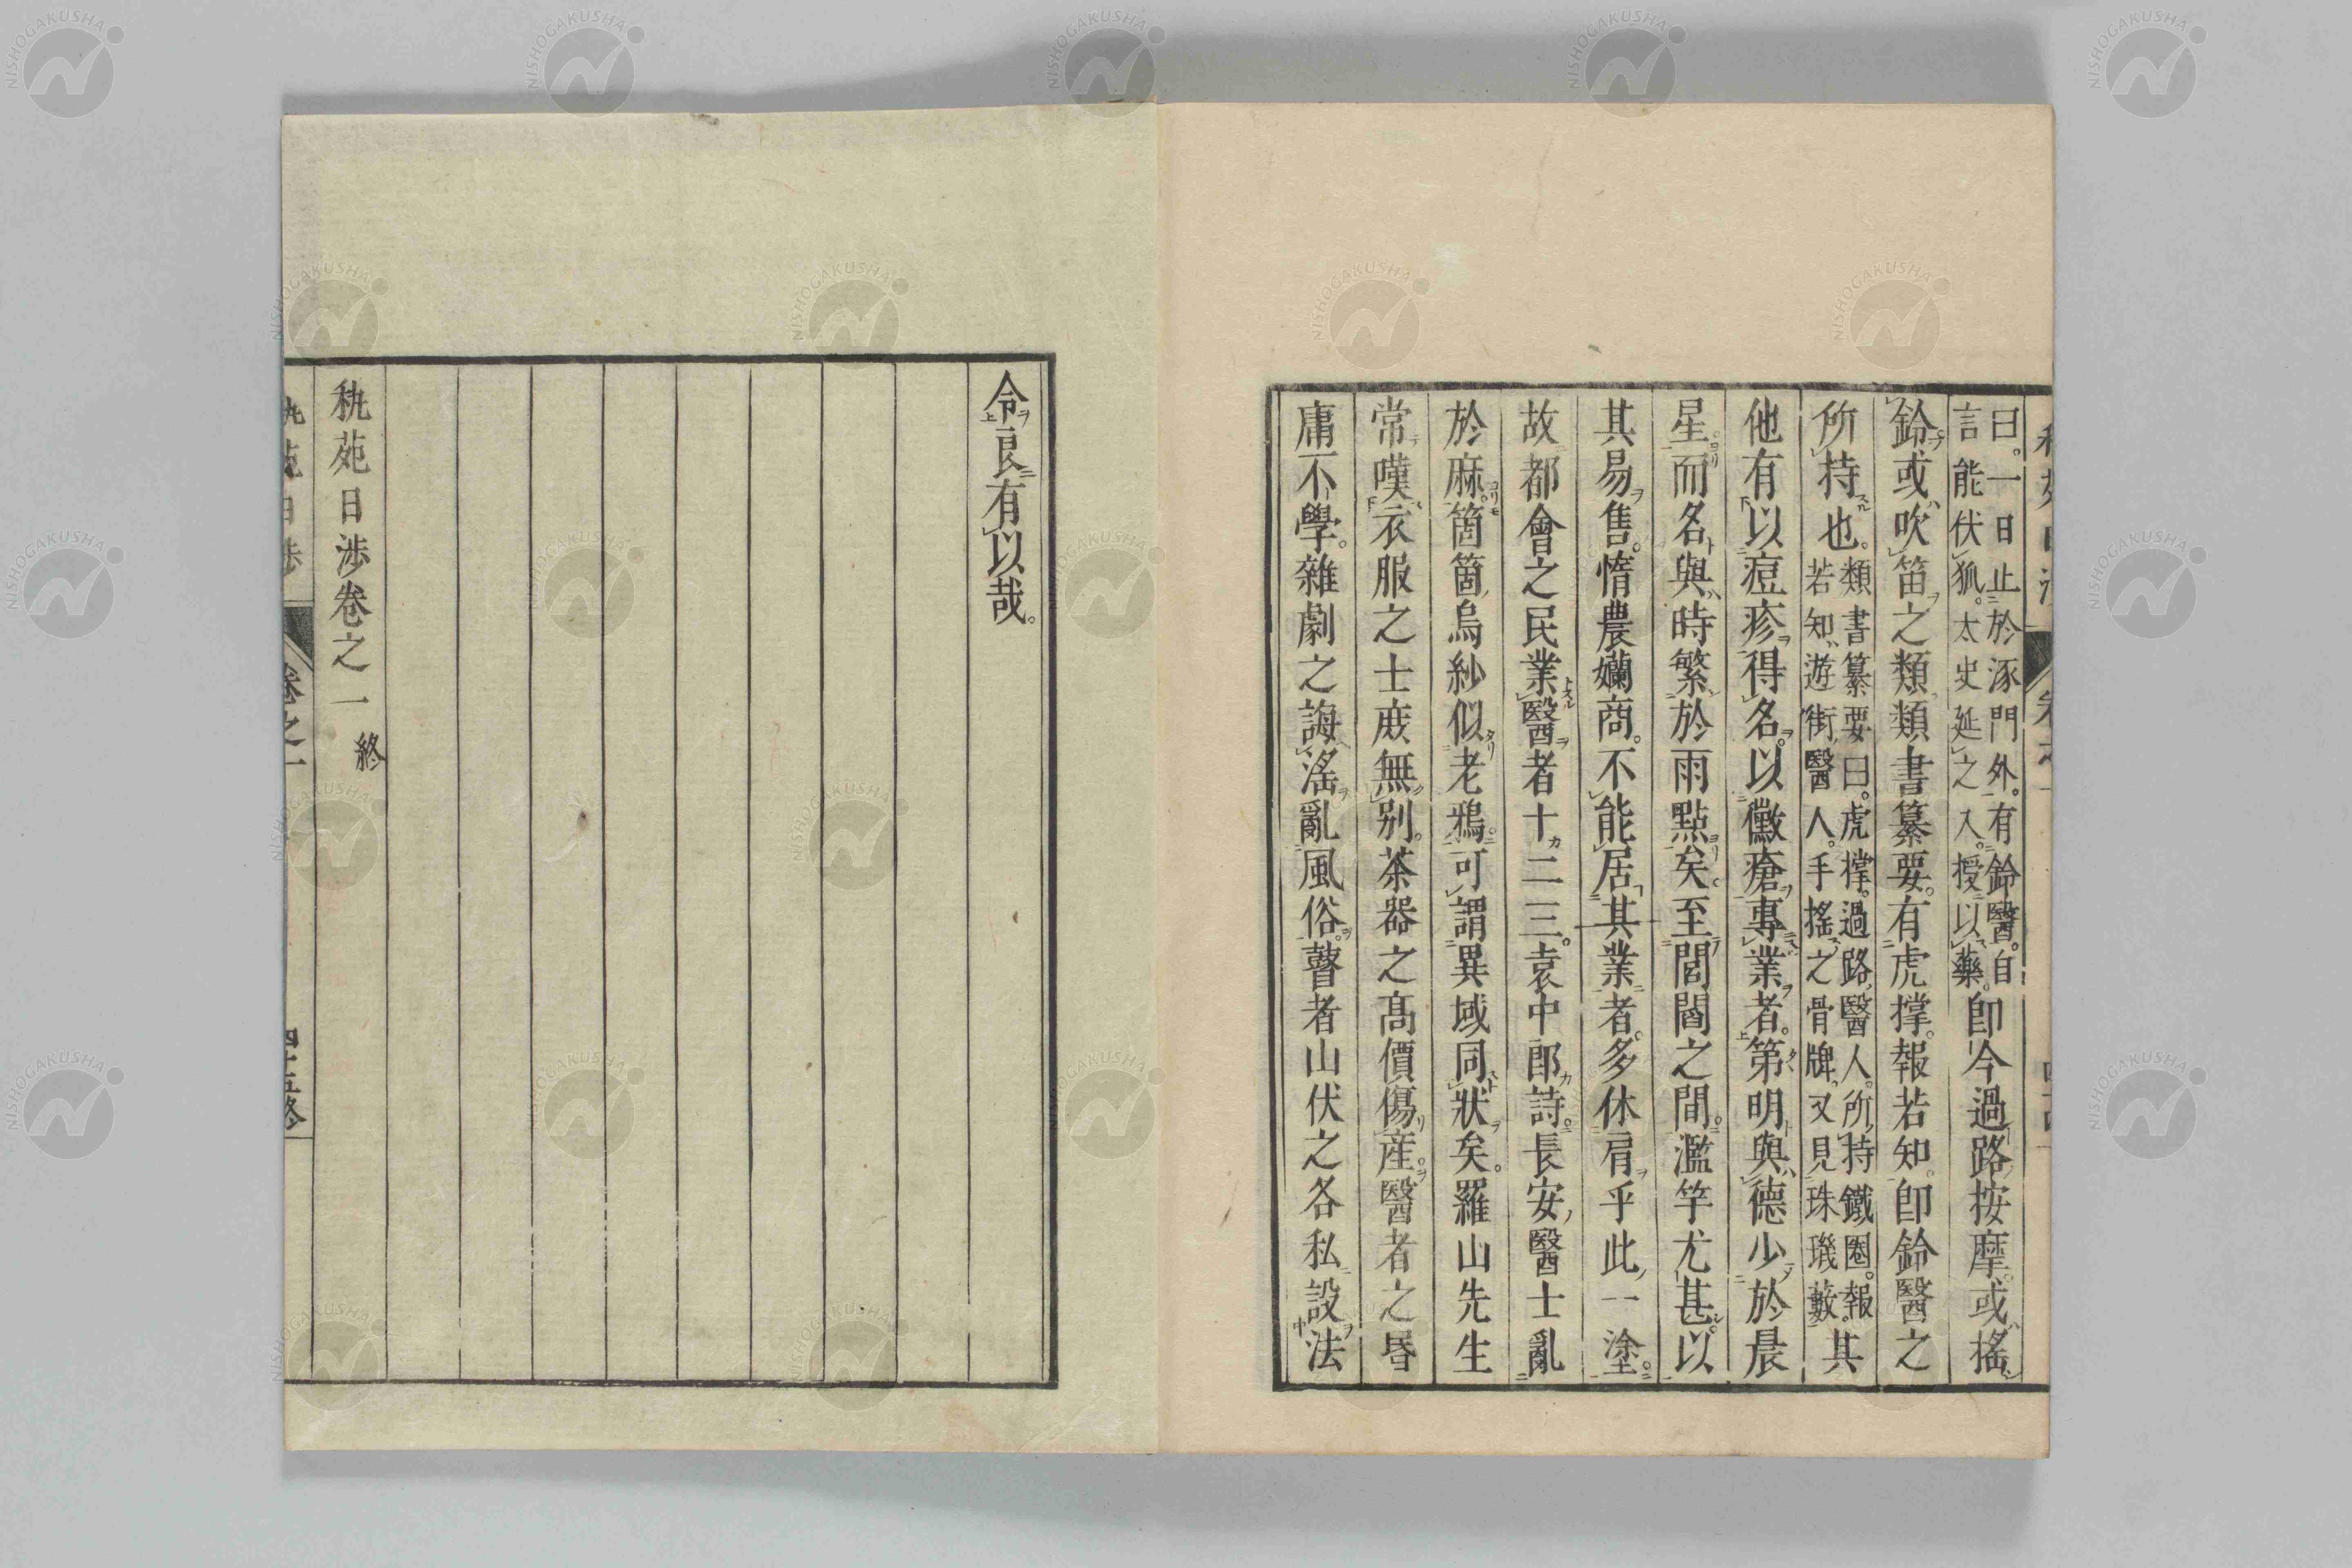 曰。一日止於涿門外。有鈴醫。自
言能伏狐。太史延之入。授以藥。
即今過路按摩。或搖
鈴或吹笛之類。類書纂要。有虎撑。報若知。即鈴醫之
所持也。
類書纂要曰。虎撑。過路醫人。所持鐵圏。報
若知。遊街醫人。手搖之骨牌。又見珠璣藪。
其
他有以痘疹得名。以黴瘡專業者。第明與德少於晨
星。而名與時繁於雨點矣。至閭閻之間。濫竽尤甚。以
其易售。惰農嬾商。不能居其業者。多休肩乎此一塗。
故都會之民業醫者十二三。袁中郎詩。長安醫士亂
於麻。箇箇烏紗似老鴉。可謂異域同狀矣。羅山先生
常嘆衣服之士庶無別。茶器之高價傷產。醫者之昏
庸不學。雜劇之誨淫亂風俗。瞽者山伏之各私設法
令。良有以哉。
秇苑日渉卷之一 終
秇苑日渉 卷之一